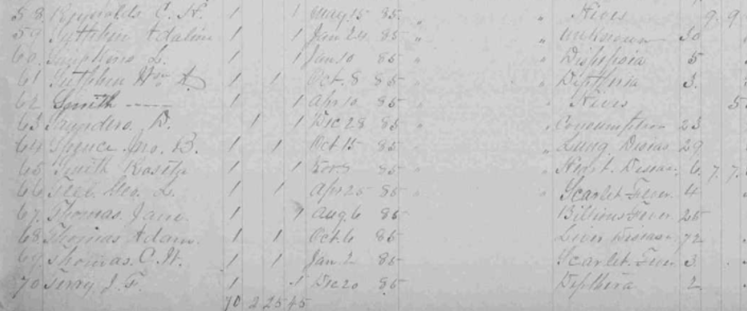 58 Reynolds C. H. 1 1 May 15 85 " " Hives 9. 9.
59 Adalin 1 1 Jan 24 85 " " Unknown 30
60 L. 1 1 Jan 10 85 " " Dispepsia 5
61 Wm A. 1 1 Oct. 8 85 " " Diptheria 3.
62 Smith ---- 1 1 Apr 10 85 " " Hives 5
63 Saunders. D. 1 1 Dec 28 85 " " Consumption 23
64 Spence Jno. B. 1 1 Oct 15 85 " " Lung Disease 29
65 Smith 1 1 85 " " Heart Disease 6 7. 7.
66 Geo. L. 1 1 Apr 25 85 " " Scarlet Fever 4
67 Thomas Jane 1 1 Aug. 6 85 " Billious Fever 25
68 Thomas Adam 1 1 Oct 6 85 Liver Disease 72
69 Thomas. C. H. 1 1 Jan 2 85 Scarlet Fever 3
70 J. F. 1 1 Dec 20 85 Dipthera 2
70 2 25 45